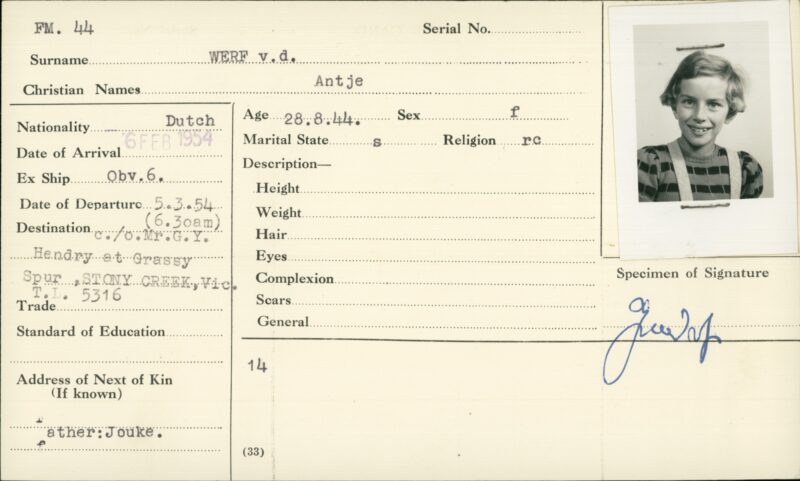 FM. 44
Serial No.
Surname WERF v.d.
Christian Names Antje
Nationality Dutch
Date of Arrival 6 FEB 1954
Ex Ship Obv.6.
Date of Departure 5.3.54
(6.30am)
Destination c./o.Mr.G.Y.
Hendry at Grassy
Spur ,STONY CREEK,Vic.
T.L. 5316
Trade
Standard of Education
Address of Next of Kin
(If known)
father:Jouke.
Age 28.8.44. Sex f
Marital State s Religion rc
Description—
Height
Weight
Hair
Eyes
Complexion
Scars
General
14
(33)
Specimen of Signature